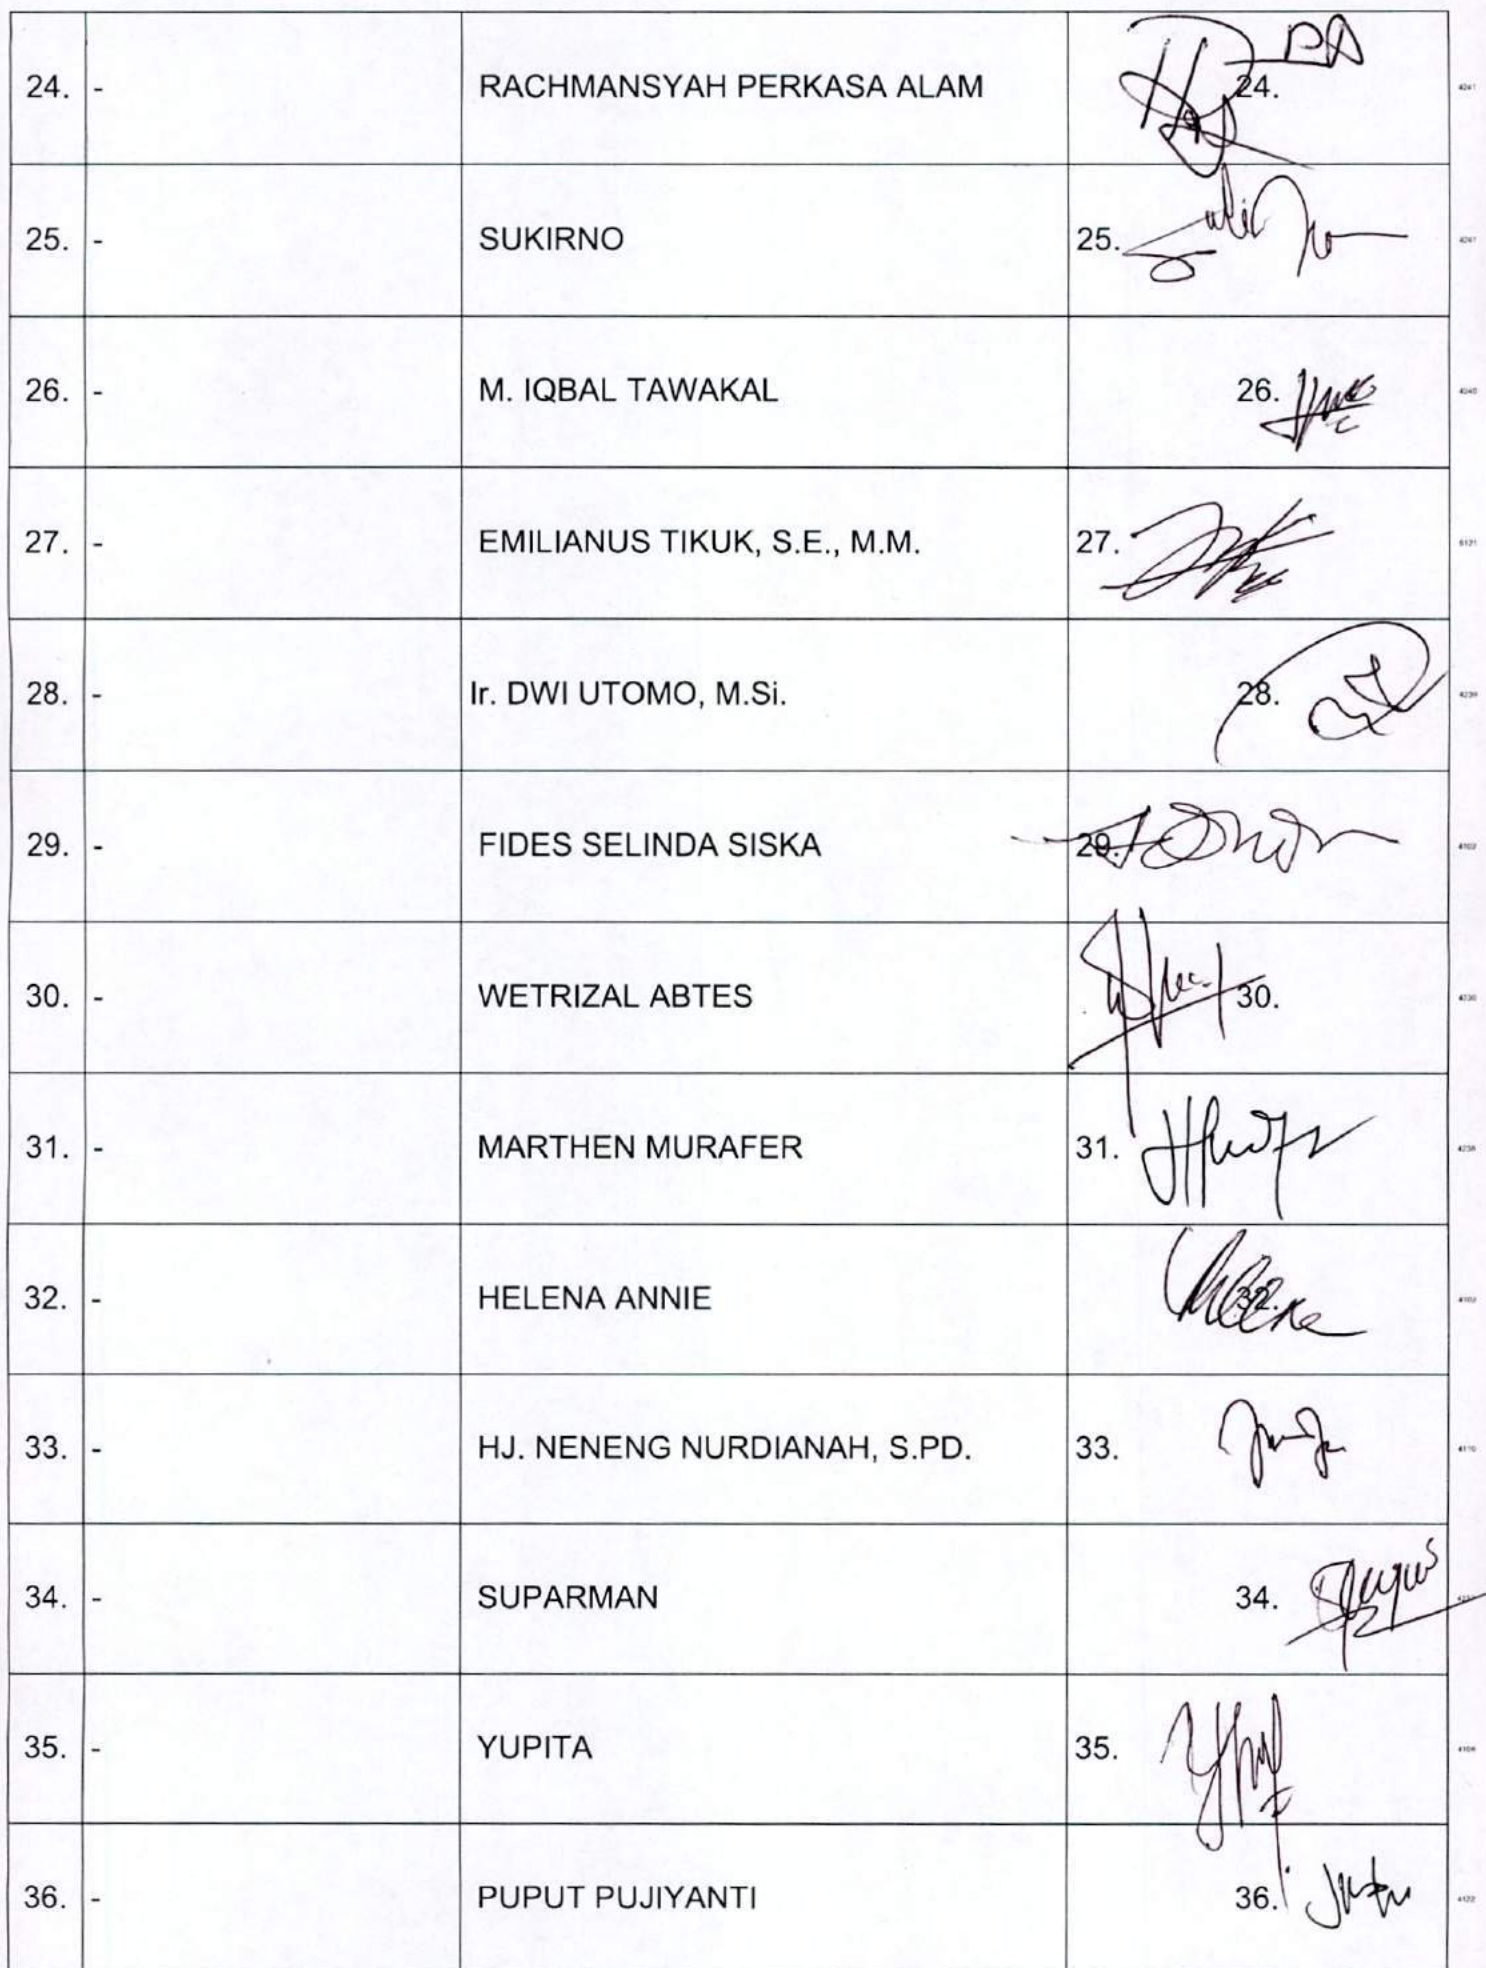 24. - RACHMANSYAH PERKASA ALAM 24. 4241
25. - SUKIRNO 25. 4241
26. - M. IQBAL TAWAKAL 26. 4240
27. - EMILIANUS TIKUK, S.E., M.M. 27.
28. - Ir. DWI UTOMO, M.Si. 28. 4239
29. - FIDES SELINDA SISKA 29. 4102
30. - WETRIZAL ABTES 30.
31. - MARTHEN MURAFER 31.
32. - HELENA ANNIE 32.
33. - HJ. NENENG NURDIANAH, S.PD. 33.
34. - SUPARMAN 34.
35. - YUPITA 35.
36. - PUPUT PUJIYANTI 36. 4122